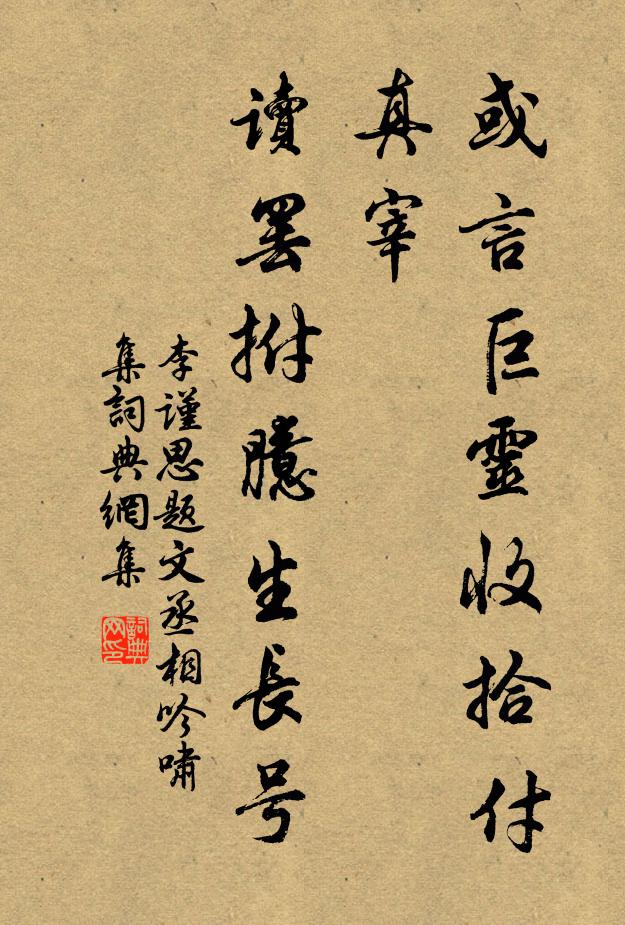 或言巨靈收拾付
真宰
讀罢拊臆生長号
李谨思题文丞相吟啸
集詞典網集
詞典网印